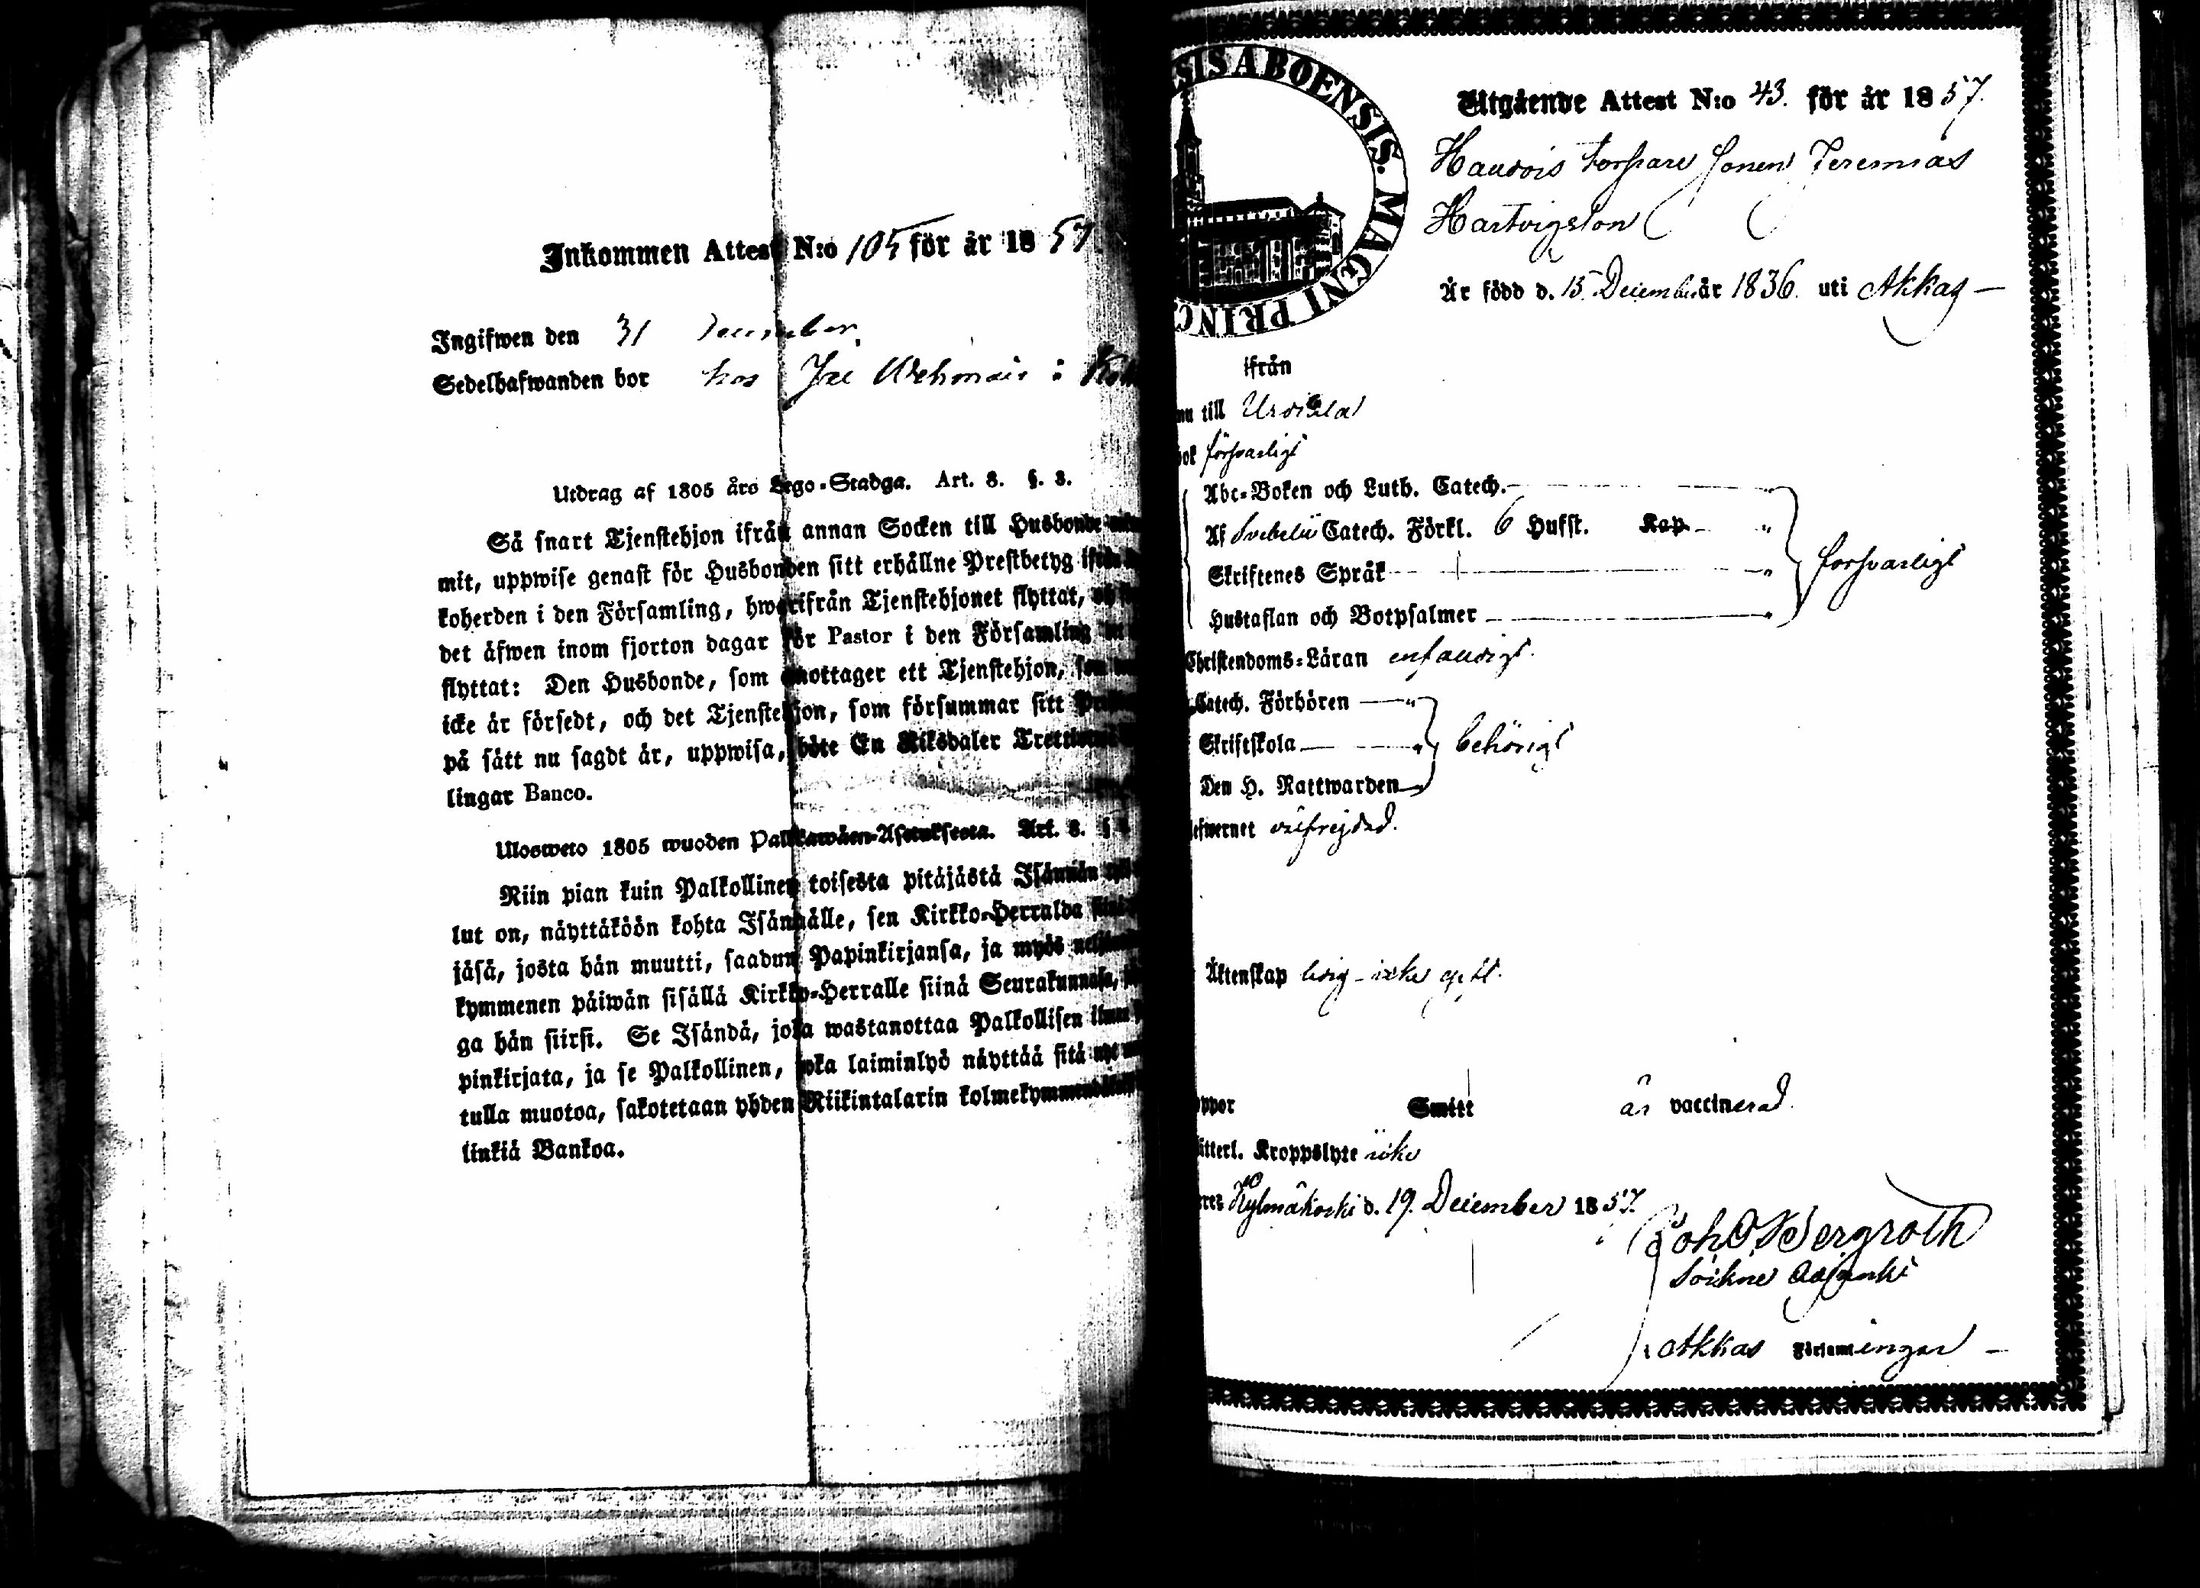 Inkommen Attest N:o 105 för år 1857
Ingifwen den 31 December
Sedelhafwanden bor hos
Utdrag af 1805 års Lego-Stadga. Art. 8. §. 3.
Så snart Tjenstehjon ifrån annan Socken till Husbonde
mit, uppwise genast för Husbonden sitt erhållne Prestbetyg ifrån
koherden i den Församling, hwarifrån Tjenstehjonet flyttat,
det äfwen inom fjorton dagar för Pastor i den Församling
flyttat: Den Husbonde, som emottager ett Tjenstehjon, som
icke är försedt, och det Tjenstehjon, som försummar sitt
på sätt nu sagdt är, uppwisa, böte En Riksdaler
lingar Banco.
Ulosweto 1805 wuoden Palkkawäen-Asetuksesta. Art. 8. §
Niin pian kuin Palkollinen toisesta pitäjästä Isännän
lut on, näyttäköön kohta Isännälle, sen Kirkko-Herralda
jäsä, josta hän muutti, saadun Papinkirjansa, ja myös
kymmenen päiwän sisällä Kirkko-Herralle siinä Seurakunnasa,
ga hän siirsi. Se Isändä, joka wastanottaa Palkollisen ilman
pinkirjata, ja se Palkollinen, joka laiminlyö näyttää sitä
tulla muotoa, sakotetaan yhden Riikintalarin
linkiä Bankoa.
ESIS ABOENSIS. MAGNI PRINC
Utgående Attest N:o 43. för år 1857.
Torpare Sonen Jeremias
Hartvigson
Är född d. 15 December år 1836. uti Akkas
ifrån
nu till Urdiala
bok försvarligt
Abc-Boken och Luth. Catech.
Af Svebelii Catech. Förkl. 6 Hufst. Kap
Skriftenes Språk
försvarligt
Hustaflan och Botpsalmer
Christendoms-Läran enfaldigt.
Catech. Förhören
Skriftskola
behörigt
Den H. Nattwarden
efwernet välfrejdad.
Äktenskap ledig - icke gift.
oppor Smitt är vaccinerad.
itterl. Kroppslyte icke
Kylmäkoski d. 19. December 1857.
Joh O Bergroth
Sockne Adjunkt
i Akkas Församlingar